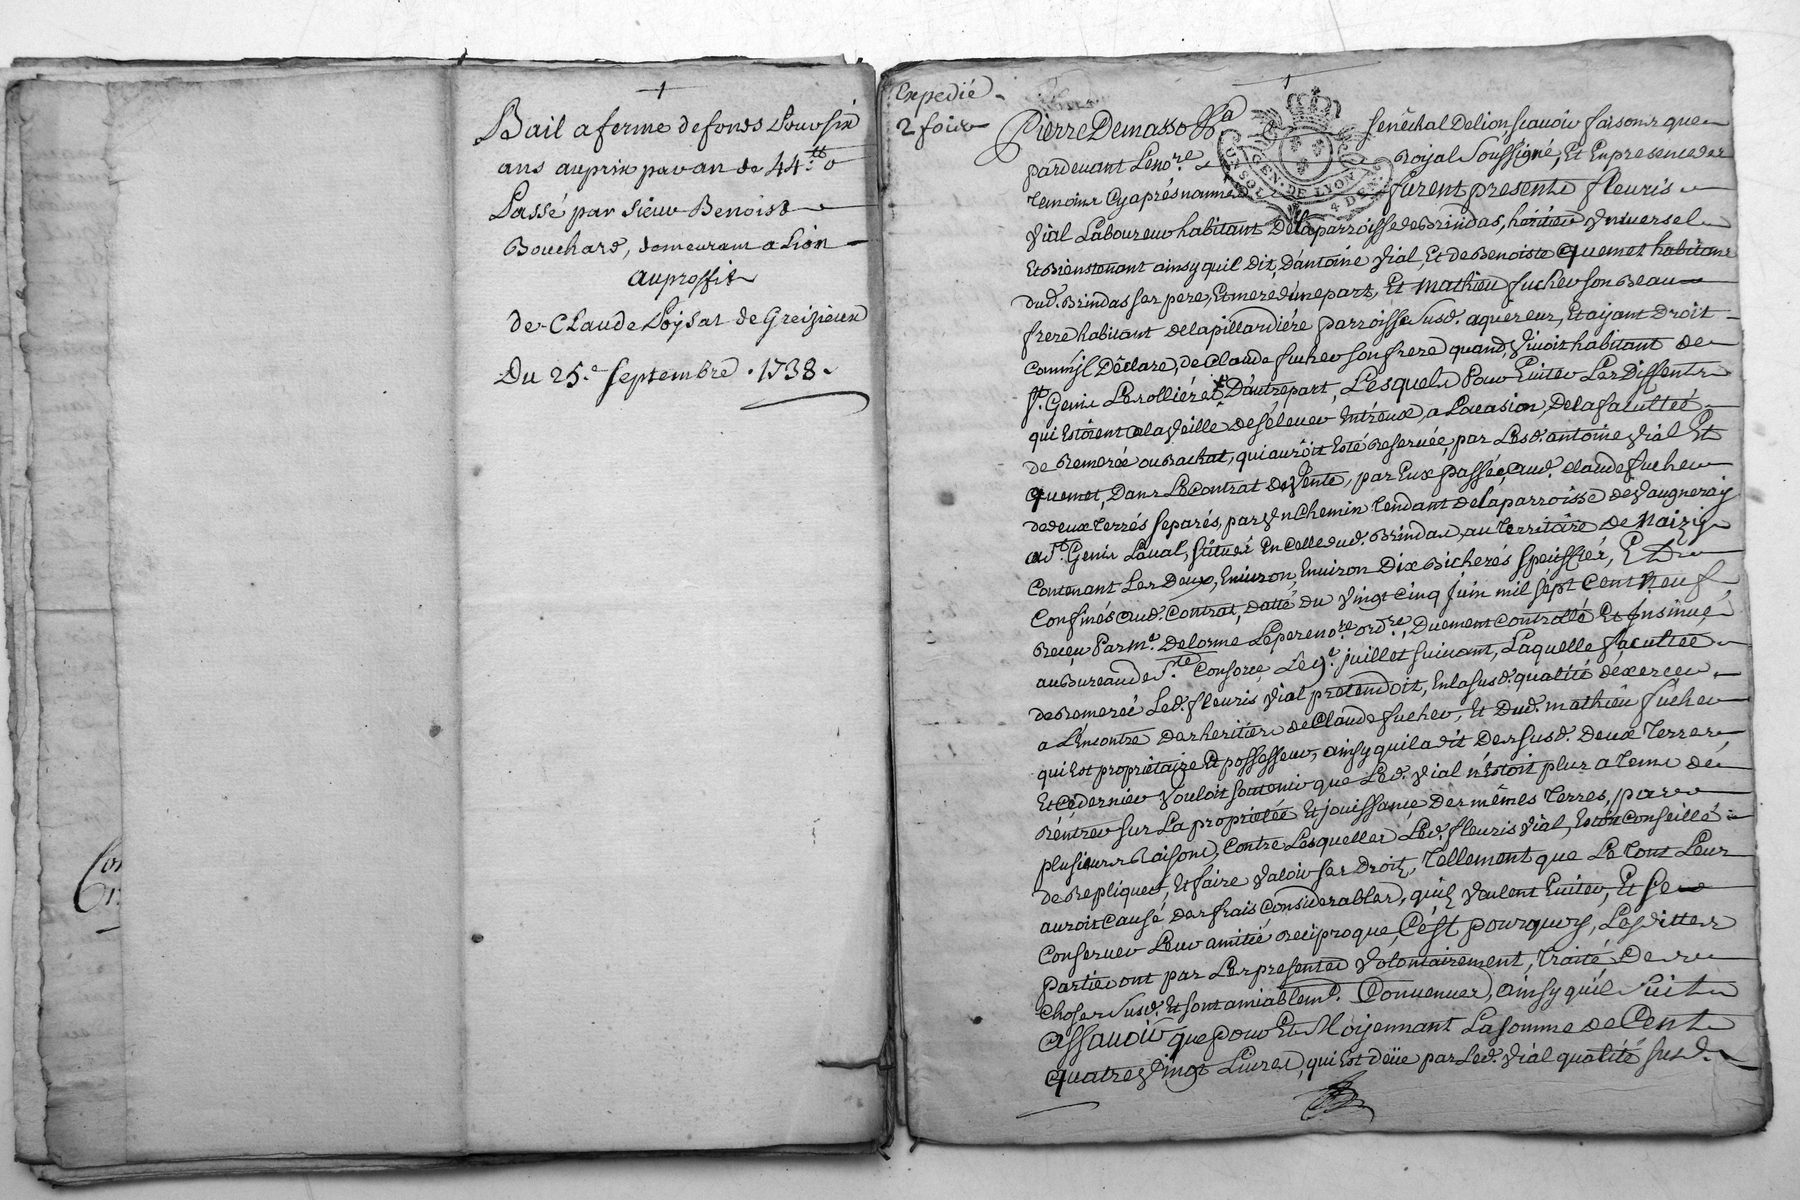 Bail a ferme de fonds Pour six
ans au prix par an de 44.tt
Passé par Sieur Benoist
Bouchard, demeurant a Lion
au proffit
de Claude Loysat de Greizieux
Du 25.e septembre . 1738.
Expedié
2 fois
Pierre Demasso Sénéchal De lion, scavoir faisons que
pardevant Le no.re Royal Soussigné, Et En presence des
temoins Cy aprés nommés furent presents fleuris
Vial Laboureur habitant De la parroisse de Brindas, heritier Universel
Et Bienstenant ainsy quil Dit, D'antoine Vial, Et de Benoiste Quemet habitans
dud. Brindas ses pere, Et mere d'une part, Et Mathieu fucher son Beau
frere habitant de la pillardiére parroisse Susd. aquereur, Et ayant Droit
comm'jl Déclare, de Claude fucher son frere quand Vivoit habitant de
S.t Genis Lerolliére D'autre part, Lesquels Pour Eviter Les Differents
qui Estoient a la Veille de s'élever Entr'eux, a L'ocasion De la faculté
de Remeréé ou Rachat, qui auroit Esté Reservée, par Lesd. antoine Vial Et
Quemet, Dans Le Contrat de Vente, par Eux passé, aud. Claude fucher
de deux terrés separés, par Un Chemin tendant de la parroisse de Vaugneray
a S.t Genis Laval, situés En Celle dud. Brindas, au territoire de Naizy
Contenant Les Deux, Environ, Environ Dix Bicherés
Confinés aud. Contrat, datté du Vingt Cinq juin mil sept Cent Neuf,
Reçeu Par m.e Delorme Le pere no.re ord.re, Duement Controllé Et Insinué
au Bureau de S.te Consorce Le 9.e juillet suivant, Laquelle faculteé
de Remereé Led. fleuris Vial pretendoit, En la Susd. qualité d'exercer
a L'encontre Des heritiers de Claude fucher, Et Dud. mathieu fucher
qui Est proprietaire Et possesseur, ainsy quil a dit Des susd. Deux Terres
Et Ce dernier Vouloit soutenir que Led. Vial n'Estoit plus a tems de
Réntrer sur La proprieteé Et jouissançe Des mêmes terres, par
plusieurs Raisons, Contre Lesquelles Led. fleuris Vial, Estoit Conseillé
de Repliquer, Et faire Valoir ses Droits, tellement que Le tout Leur
auroit Causé des frais Considerables, quils Veulent Eviter, Et se
Conserver Leur amitié Reciproque, C'est pourquoy, Lesdittes
parties ont par Les presentes Volontairement, traité Des
choses Susd. Et sont amiablem.t Convenues, ainsy quil suit
assavoir que pour Et Moyennant La somme de Cent
quatre Vingt Livres, qui Est deüe par Led. Vial qualité susd.